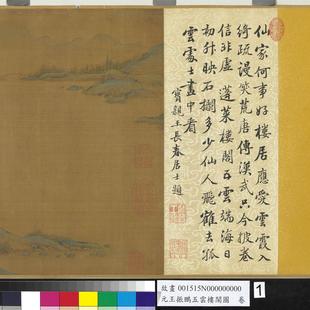 仙家何事好樓居應受雲霞入
綺疏漫笑荒唐傳漢武只今披卷
信非虛蓬萊樓閣五雲端海日
初升映石攔多少仙人飛鶴去孤
雲處士畫中看
寶親王長春居士題
故畫 001515N000000000
元王振鵬五雲樓閣圖 卷
1